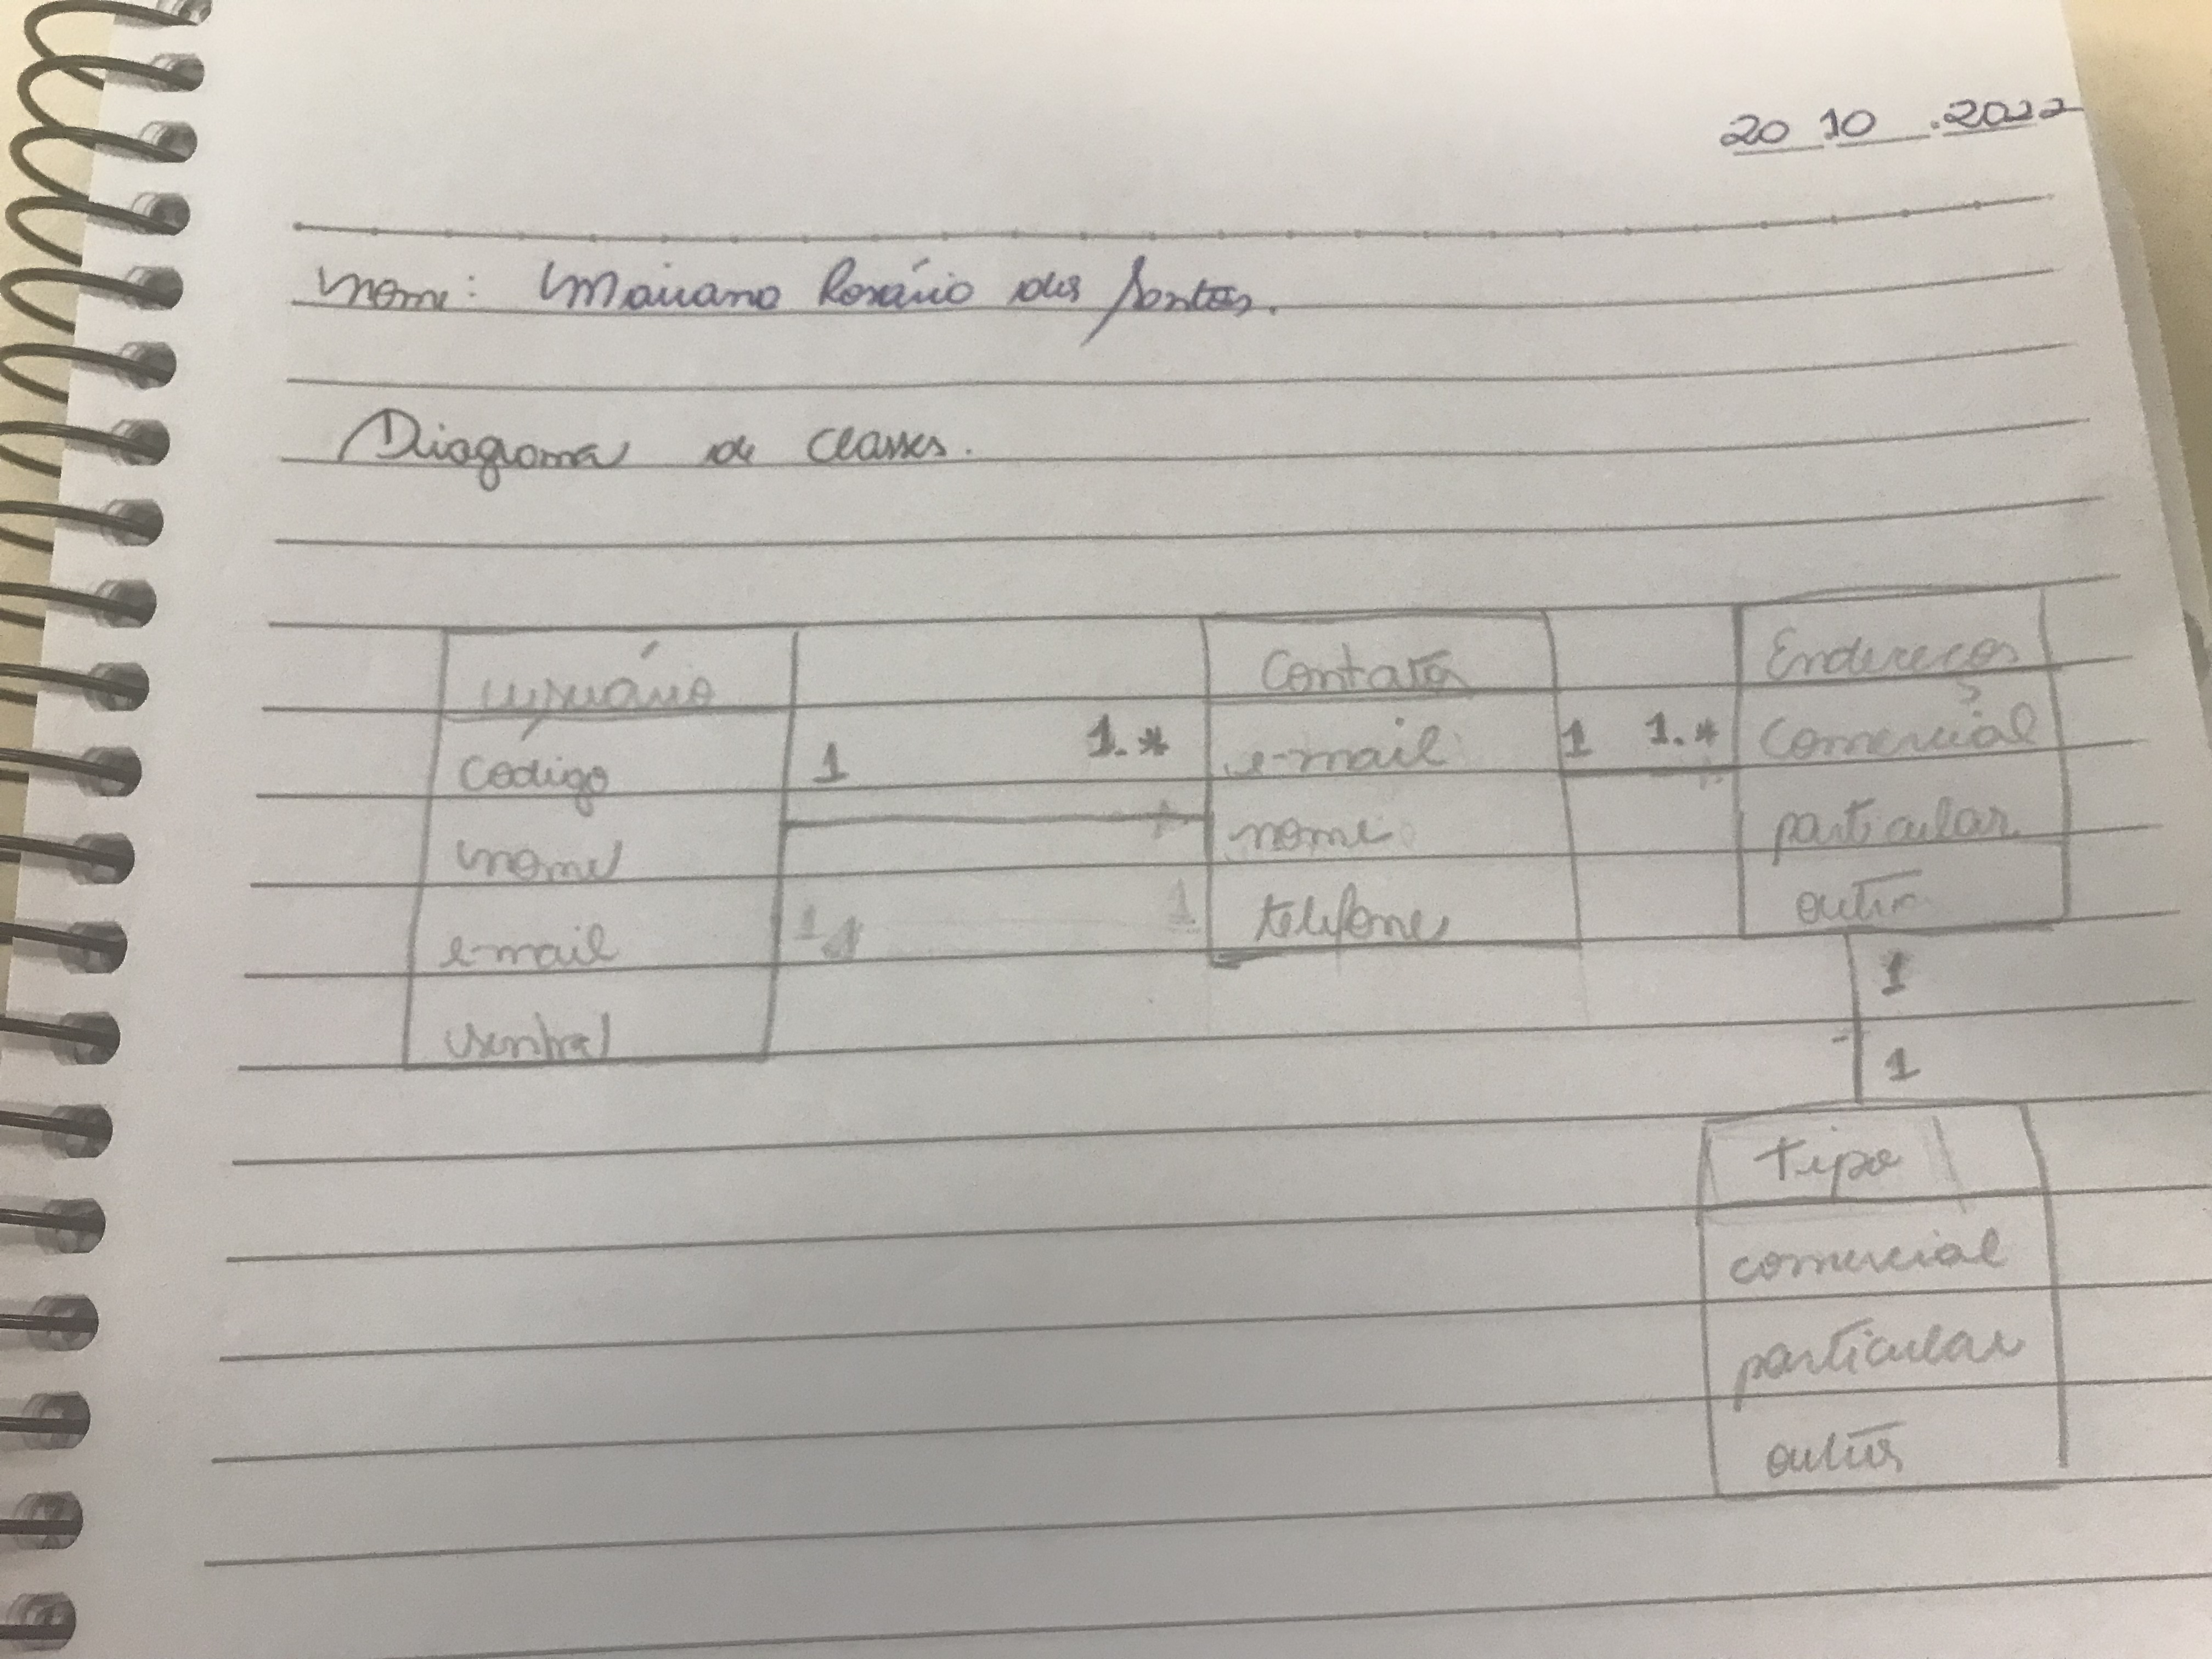 20 10 2022
Nome: Maiara Rosário dos Santos.
Diagrama de classes.
usuário
codigo
nome
e-mail
senha
1 1.*
Contatos
e-mail
nome
telefone
1 1.*
Endereços
Comercial
particular
outro
1
1
tipo
comercial
particular
outros